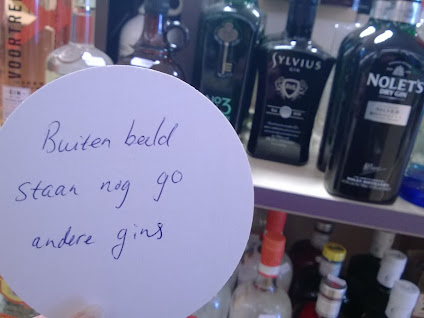 VOORTRE
Nº3
SYLVIUS
GIN
NOLET'S
DRY GIN
SILVER
Buiten beeld
staan nog 90
andere gins